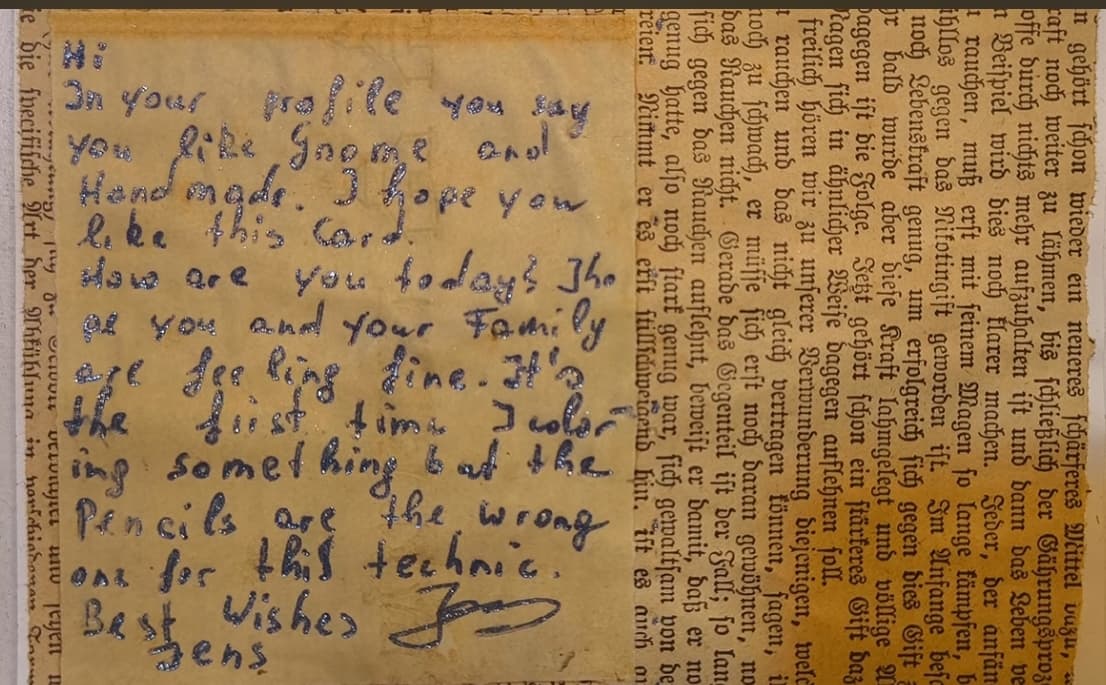 Hi
In your profile you say
you like Gnome and
Handmade. I hope you
like this Card.
How are you today? I ho
pe you and your Family
are feeling fine. It's
the first time I color
ing something but the
Pencils are the wrong
one for this technic.
Best Wishes
Jens
n gehört schon wieder ein neueres schärferes Mittel dazu,
raft noch weiter zu lähmen, bis schließlich der Gährungsproz
offe durch nichts mehr aufzuhalten ist und dann das Leben ve
n Beispiel wird dies noch klarer machen. Jeder, der anfän
u rauchen, muß erst mit seinem Magen so lange kämpfen, b
ihllos gegen das Nikotingift geworden ist. Im Anfange bes
noch Lebenskraft genug, um erfolgreich sich gegen dies Gift z
hr bald wurde aber diese Kraft lahmgelegt und völlige U
dagegen ist die Folge. Jetzt gehört schon ein stärkeres Gift daz
Magen sich in ähnlicher Weise dagegen auflehnen soll.
freilich hören wir zu unserer Verwunderung diejenigen, welc
t rauchen und das nicht gleich vertragen können, sagen, i
noch zu schwach, er müsse sich erst noch daran gewöhnen, no
das Rauchen nicht. Gerde das Gegenteil ist der Fall; so lan
sich gegen das Rauchen auflehnt, beweist er damit, daß er no
genug hatte, also noch stark genug war, sich gewaltsam von de
reien. Nimmt er es erst stillschweigend hin, ist es auch
die spezifische Art der